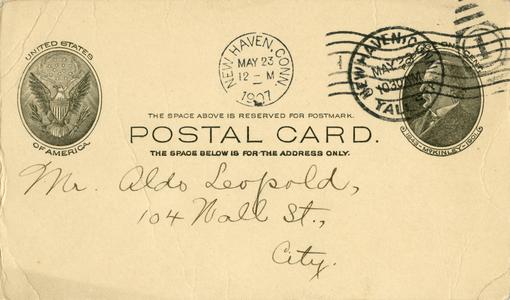 UNITED STATES
OF AMERICA
NEW HAVEN, CONN.
MAY 23
12-M
1907
NEW HAVEN, CONN.
MAY 23
1030
YALE STA.
1
ONE CENT
1843-McKINLEY-1901
THE SPACE ABOVE IS RESERVED FOR POSTMARK.
POSTAL CARD.
THE SPACE BELOW IS FOR THE ADDRESS ONLY.
Mr. Aldo Leopold,
104 Wall St.,
City.